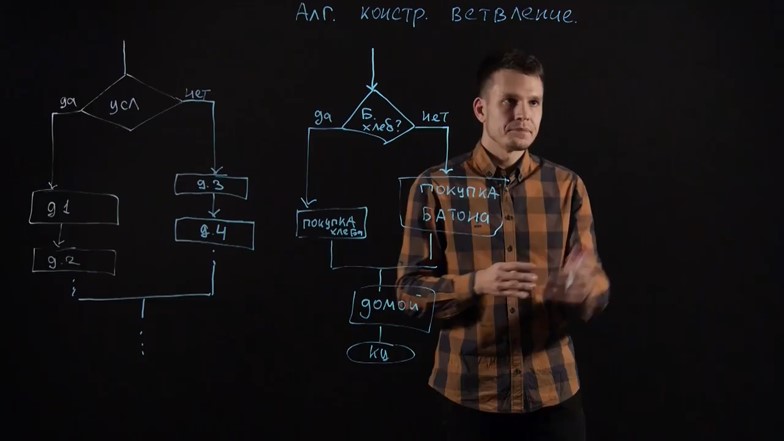 Алг. констр. ветвление.
да
усл
нет
д1
д.2
д.3
д.4
да
Б.
хлеб?
нет
покупка
хлеба
покупка
батона
домой
кц